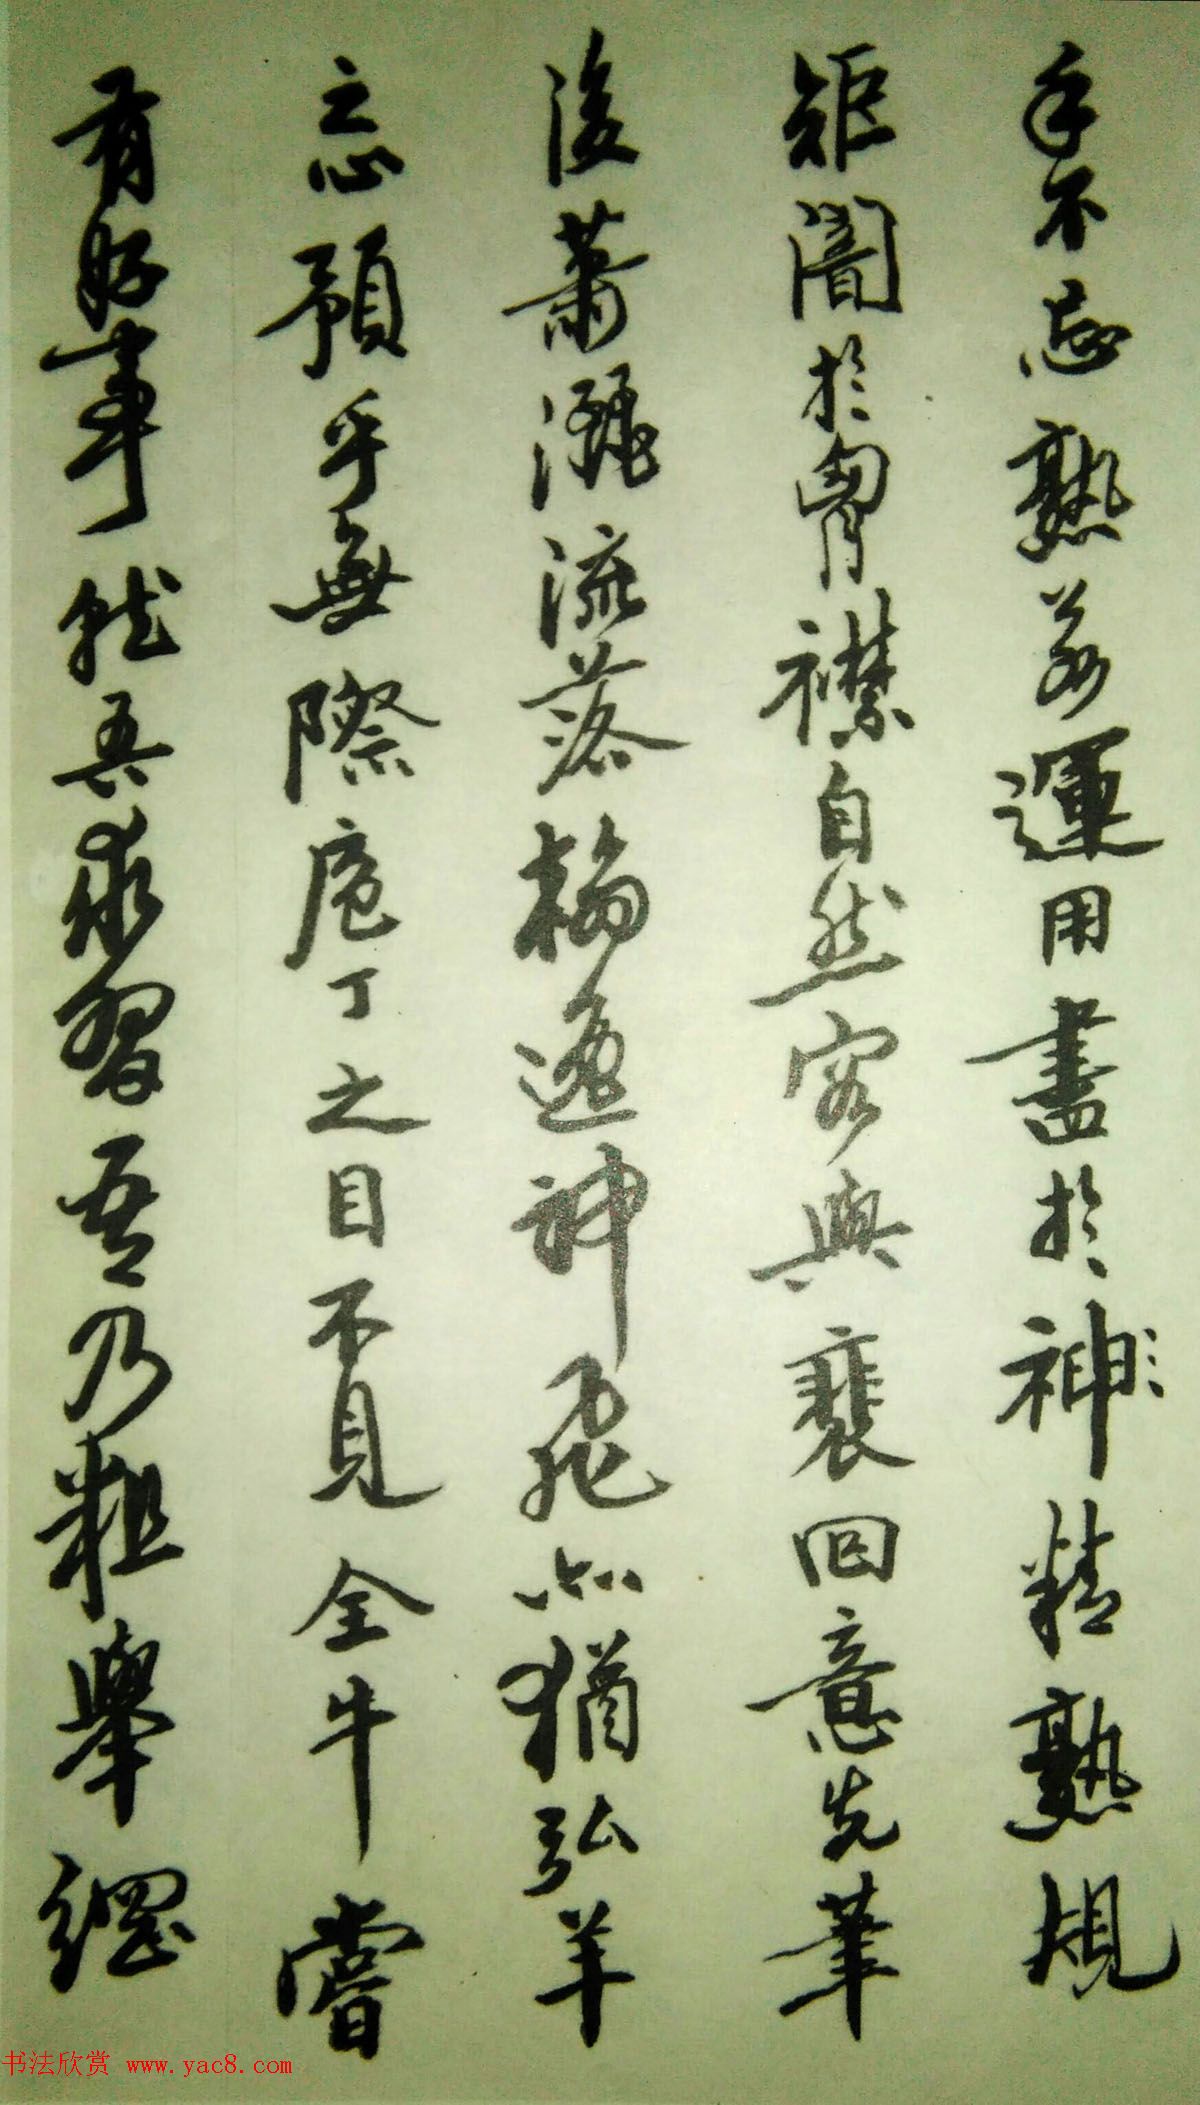 手不忘熟若運用盡於神精熟規
矩闇於胷襟自然容與裴回意先筆
後蕭灑流落翰逸神飛亦猶弘羊
之心預乎無際庖丁之目不見全牛嘗
有好事就吾求習吾乃粗舉綱
书法欣赏 www.yac8.com